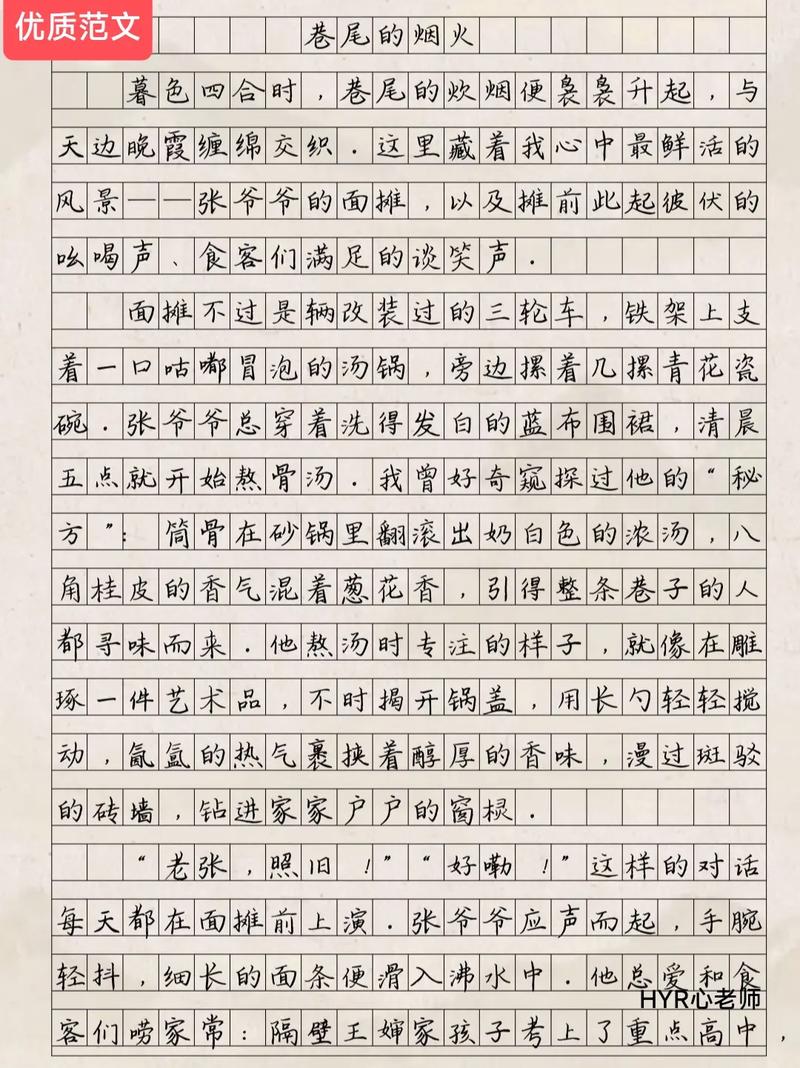 优质范文
巷尾的烟火
暮色四合时，巷尾的炊烟便袅袅升起，与
天边晚霞缠绵交织．这里藏着我心中最鲜活的
风景——张爷爷的面摊，以及摊前此起彼伏的
吆喝声、食客们满足的谈笑声．
面摊不过是辆改装过的三轮车，铁架上支
着一口咕嘟冒泡的汤锅，旁边摞着几摞青花瓷
碗．张爷爷总穿着洗得发白的蓝布围裙，清晨
五点就开始熬骨汤．我曾好奇窥探过他的“秘
方”：筒骨在砂锅里翻滚出奶白色的浓汤，八
角桂皮的香气混着葱花香，引得整条巷子的人
都寻味而来．他熬汤时专注的样子，就像在雕
琢一件艺术品，不时揭开锅盖，用长勺轻轻搅
动，氤氲的热气裹挟着醇厚的香味，漫过斑驳
的砖墙，钻进家家户户的窗棂．
“老张，照旧！”“好嘞！”这样的对话
每天都在面摊前上演．张爷爷应声而起，手腕
轻抖，细长的面条便滑入沸水中．他总爱和食
HYR心老师
客们唠家常：隔壁王婶家孩子考上了重点高中，